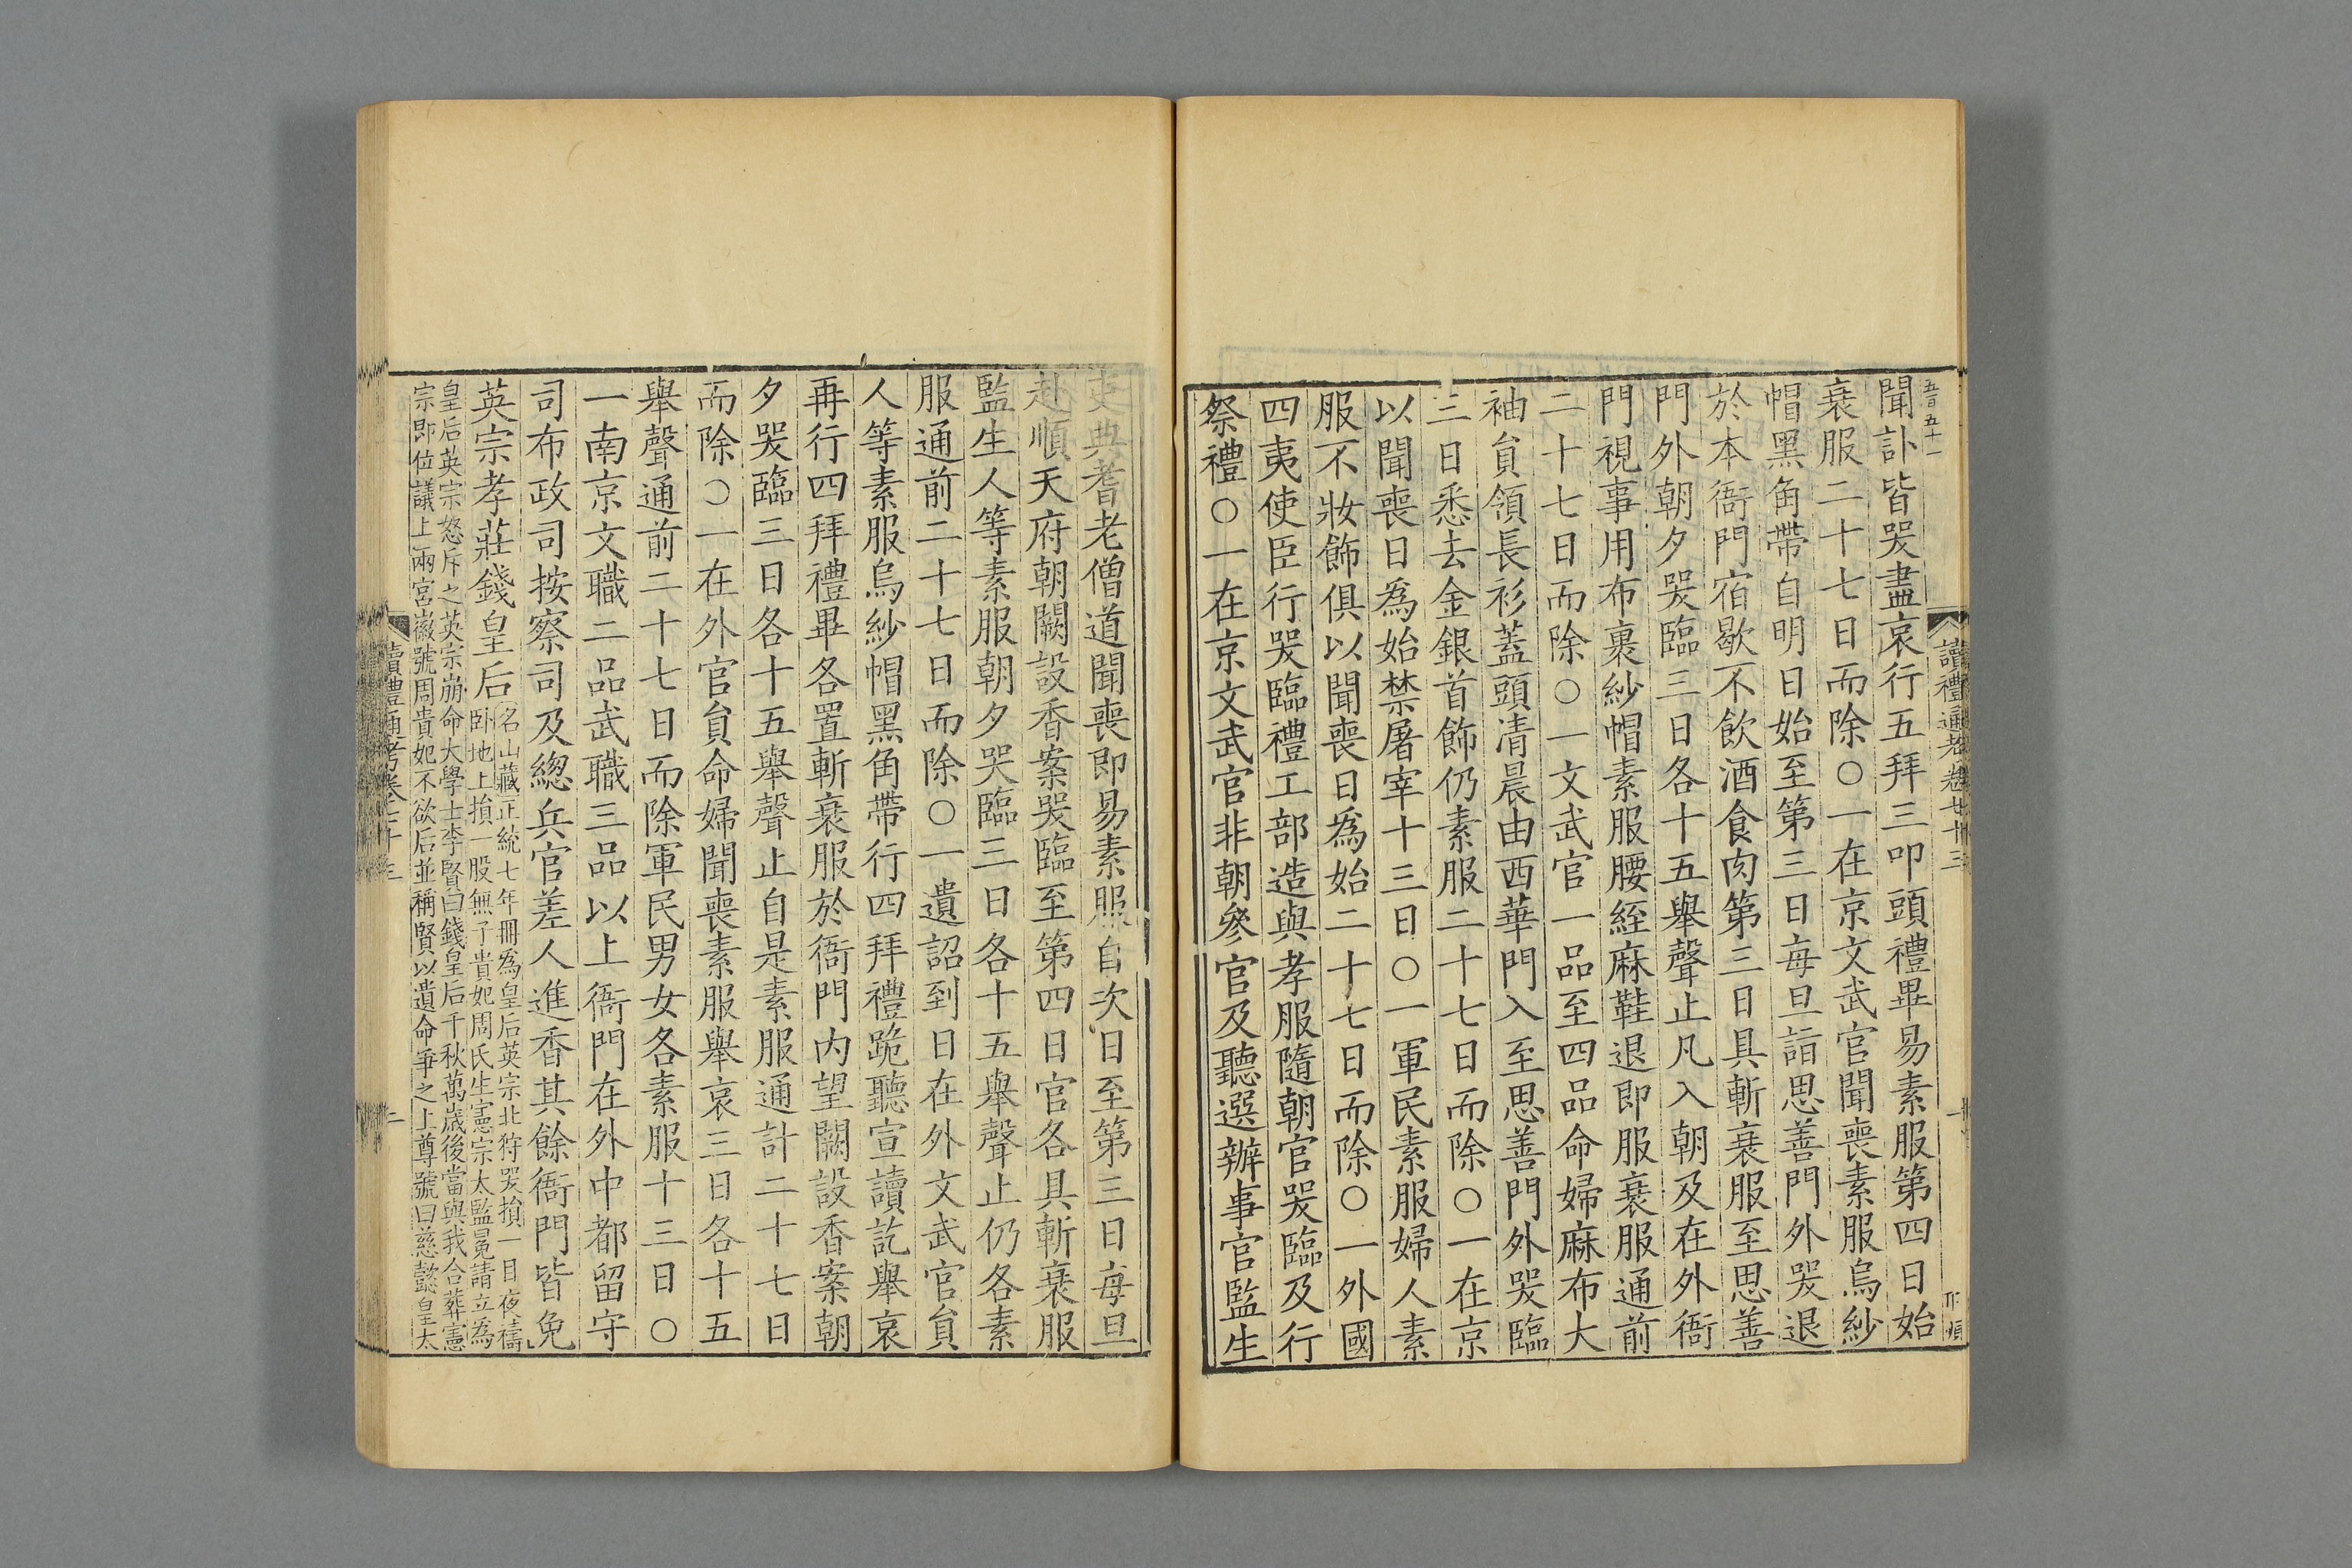 五百五十一
讀禮通考卷七十三
聞訃皆哭盡哀行五拜三叩頭禮畢易素服第四日始
衰服二十七日而除○一在京文武官聞喪素服烏紗
帽黑角帶自明日始至第三日每旦詣思善門外哭退
於本衙門宿歇不飲酒食肉第三日具斬衰服至思善
門外朝夕哭臨三日各十五舉聲止凡入朝及在外衙
門視事用布裹紗帽素服腰絰麻鞋退即服衰服通前
二十七日而除○一文武官一品至四品命婦麻布大
袖貟領長衫蓋頭清晨由西華門入至思善門外哭臨
三日悉去金銀首飾仍素服二十七日而除○一在京
以聞喪日爲始禁屠宰十三日○一軍民素服婦人素
服不妝飾俱以聞喪日爲始二十七日而除○一外國
四夷使臣行哭臨禮工部造與孝服隨朝官哭臨及行
祭禮○一在京文武官非朝參官及聽選辦事官監生
吏典耆老僧道聞喪即易素服自次日至第三日每旦
赴順天府朝闕設香案哭臨至第四日官各具斬衰服
監生人等素服朝夕哭臨三日各十五舉聲止仍各素
服通前二十七日而除○一遺詔到日在外文武官貟
人等素服烏紗帽黑角帶行四拜禮跪聽宣讀訖舉哀
再行四拜禮畢各置斬衰服於衙門内望闕設香案朝
夕哭臨三日各十五舉聲止自是素服通計二十七日
而除○一在外官貟命婦聞喪素服舉哀三日各十五
舉聲通前二十七日而除軍民男女各素服十三日○
一南京文職二品武職三品以上衙門在外中都留守
司布政司按察司及緫兵官差人進香其餘衙門皆免
英宗孝莊錢皇后
名山藏正統七年冊爲皇后英宗北狩哭損一目夜禱
卧地上損一股無子貴妃周氏生憲宗太監冕請立爲
皇后英宗怒斥之英宗崩命大學士李賢曰錢皇后千秋萬歲後當與我合葬憲
宗即位議上兩宮徽號周貴妃不欲后並稱賢以遺命爭之上尊號曰慈懿皇太
讀禮通考卷七十三